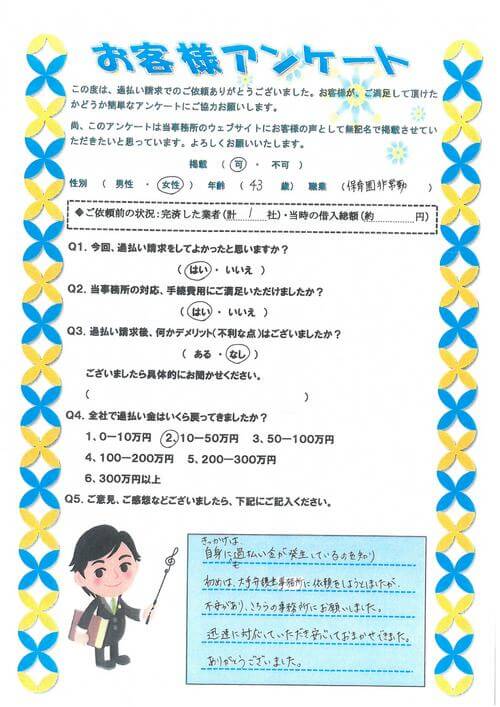 お客様アンケート
この度は、過払い請求でのご依頼ありがとうございました。お客様が、ご満足して頂けた
かどうか簡単なアンケートにご協力お願いします。
尚、このアンケートは当事務所のウェブサイトにお客様の声として無記名で掲載させてい
ただきたいと思っています。よろしくお願いいたします。
掲載 ( 可 ・ 不可 )
性別 ( 男性 ・ 女性 ) 年齢 ( 43 歳) 職業 (保育園非常勤 )
◆ご依頼前の状況:完済した業者(計 1 社)・当時の借入総額(約 円)
Q1. 今回、過払い請求をしてよかったと思いますか?
( はい ・ いいえ )
Q2. 当事務所の対応、手続費用にご満足いただけましたか?
( はい ・ いいえ )
Q3. 過払い請求後、何かデメリット(不利な点)はございましたか?
( ある ・ なし )
ございましたら具体的にお聞かせください。
( )
Q4. 全社で過払い金はいくら戻ってきましたか?
1、0−10万円 2、10−50万円 3、50−100万円
4、100−200万円 5、200−300万円
6、300万円以上
Q5. ご意見、ご感想などございましたら、下記にご記入ください。
きっかけは、
自身に過払い金が発生しているのを知り
も
初めは、大手弁護士事務所に依頼をしようとしましたが、
不安があり、こちらの事務所にお願いしました。
迅速に対応していただき安心しておまかせできました。
ありがとうございました。